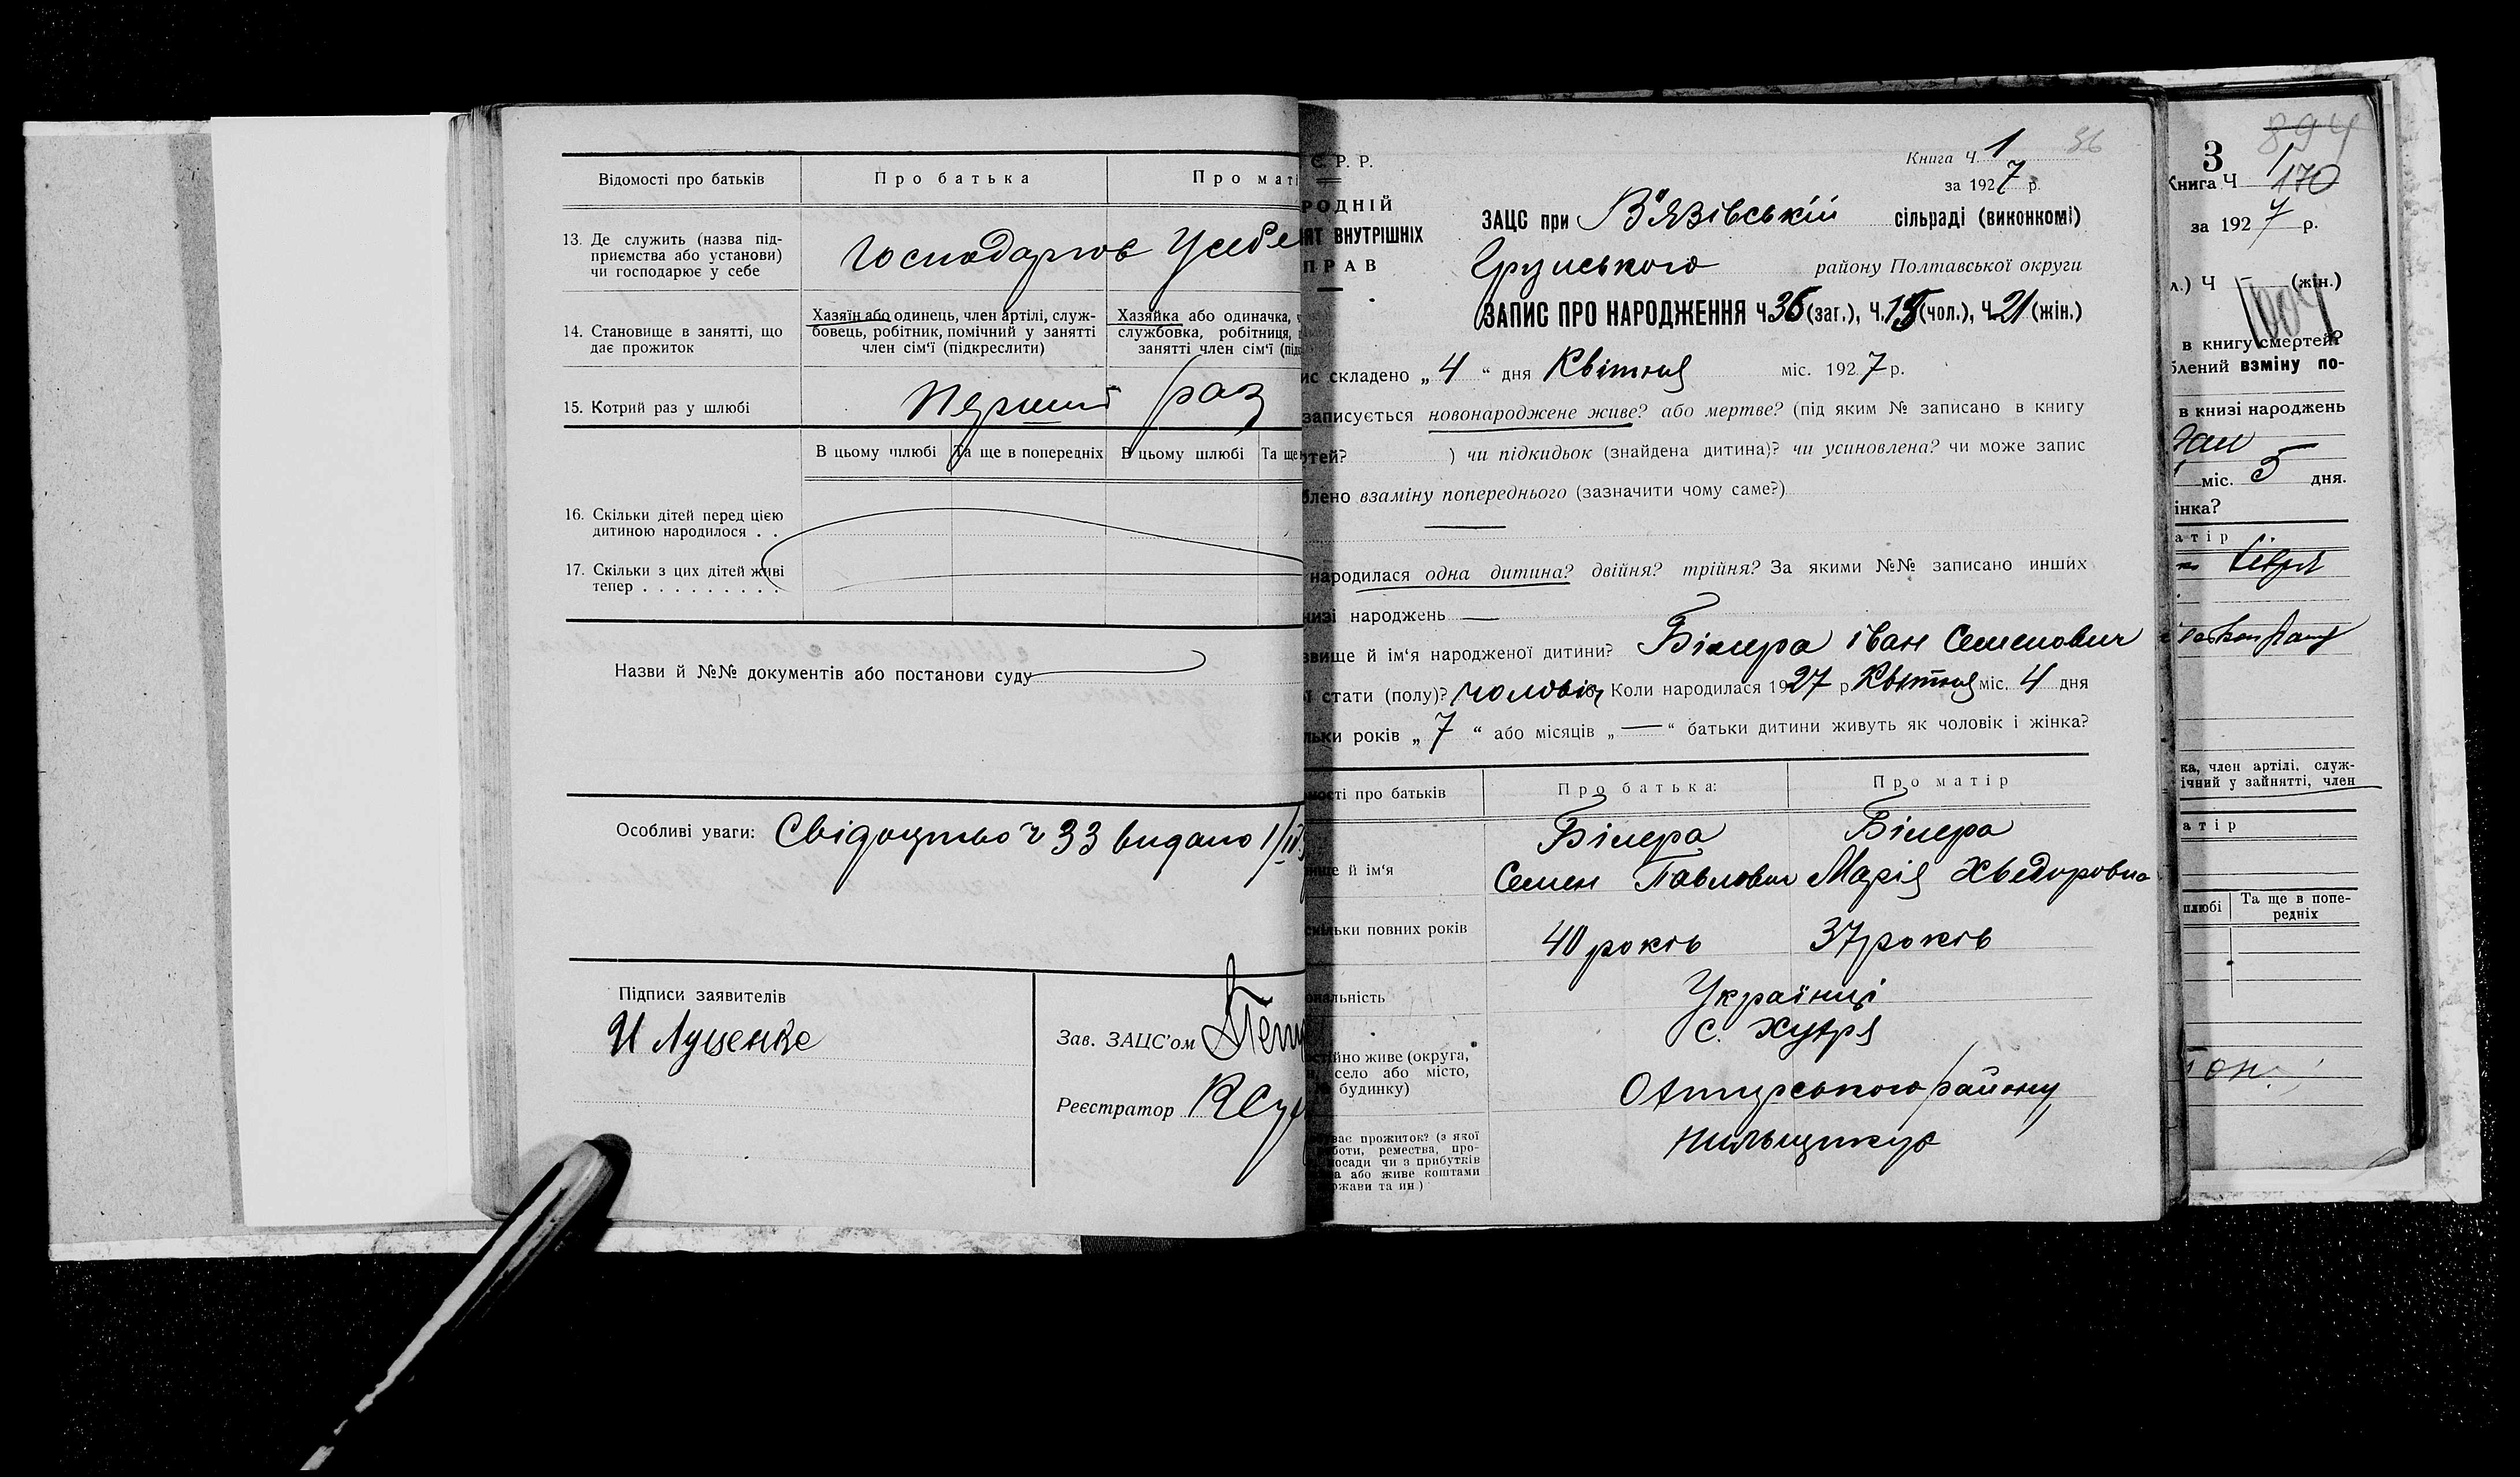 Відомості про батьків
Про батька
Про маті
13. Де служить (назва під-
приємства або установи)
чи господарює у себе
Господарюв Усебе
14. Становище в занятті, що
дає прожиток
Хазяїн або одинець, член артілі, служ-
бовець, робітник, помічний у занятті
член сім'ї (підкреслити)
Хазяйка або одиначка,
службовка, робітниця,
занятті член сім'ї
15. Котрий раз у шлюбі
Перший раз
В цьому шлюбі
Та ще в попередніх
В цьому шлюбі
Та ще
16. Скільки дітей перед цією
дитиною народилося . .
17. Скільки з цих дітей живі
тепер . . . . . . . . .
Назви й №№ документів або постанови суду
Особливі уваги: Свідоцтво ч 33 видано 1/IV
Підписи заявителів
И Луценко
Зав. ЗАЦС'ом
Реєстратор
Є. Р. Р.
РОДНІЙ
ІЯТ ВНУТРІШНІХ
ПРАВ
36
Книга Ч. 1
за 1927 р.
ЗАЦС при В'язівській сільраді (виконкомі)
Грунського району Полтавської округи
ЗАПИС ПРО НАРОДЖЕННЯ Ч. 36 (заг.), Ч. 15 (чол.), Ч. 21 (жін.)
ис складено „4“ дня Квітня міс. 1927 р.
записується новонароджене живе? або мертве? (під яким № записано в книгу
ртей? ) чи підкидьок (знайдена дитина)? чи усиновлена? чи може запис
блено взаміну попереднього (зазначити чому саме?)
народилася одна дитина? двійня? трійня? За якими №№ записано инших
низі народжень —
звище й ім'я народженої дитини? Білера Іван Семенович
ї стати (полу)? чоловіч. Коли народилася 1927 р. Квітня міс. 4 дня
льки років „7“ або місяців „—“ батьки дитини живуть як чоловік і жінка?
мості про батьків
Про батька:
Про матір
ище й ім'я
Білера
Семен Павлович
Білера
Марія Хведоровна
скільки повних років
40 років
37 років
ональність
Українці
остійно живе (округа,
н, село або місто,
№ будинку)
с. Хутря
Опішського району
уває прожиток? (з якої
боти, ремества, про-
посади чи з прибутків
а або живе коштами
ржави та ин)
3
894
Книга Ч 1
170
за 1927 р.
л.) Ч (жін.)
в книгу смертей?
блений взміну по-
в книзі народжень
міс. 5 дня.
інка?
атір
ка, член артілі, служ-
ічний у зайнятті, член
атір
шлюбі
Та ще в попе-
редніх